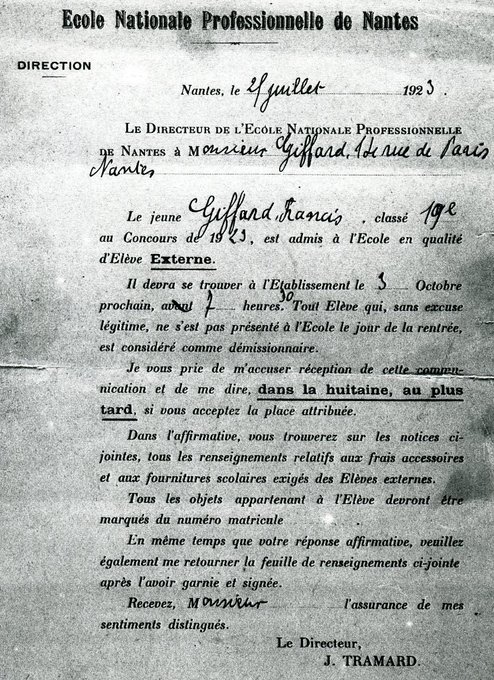 Ecole Nationale Professionnelle de Nantes
DIRECTION
Nantes, le 25 juillet 1923.
LE DIRECTEUR DE L'ECOLE NATIONALE PROFESSIONNELLE
DE NANTES à Monsieur Giffard, rue de Paris
Nantes
Le jeune Giffard, Francis, classé 19e
au Concours de 1923, est admis à l'Ecole en qualité
d'Elève Externe.
Il devra se trouver à l'Etablissement le 3 Octobre
prochain, avant 7 heures 30 Tout Elève qui, sans excuse
légitime, ne s'est pas présenté à l'Ecole le jour de la rentrée,
est considéré comme démissionnaire.
Je vous prie de m'accuser réception de cette commu-
nication et de me dire, dans la huitaine, au plus
tard, si vous acceptez la place attribuée.
Dans l'affirmative, vous trouverez sur les notices ci-
jointes, tous les renseignements relatifs aux frais accessoires
et aux fournitures scolaires exigés des Elèves externes.
Tous les objets appartenant à l'Elève devront être
marqués du numéro matricule
En même temps que votre réponse affirmative, veuillez
également me retourner la feuille de renseignements ci-jointe
après l'avoir garnie et signée.
Recevez, Monsieur l'assurance de mes
sentiments distingués.
Le Directeur,
J. TRAMARD.